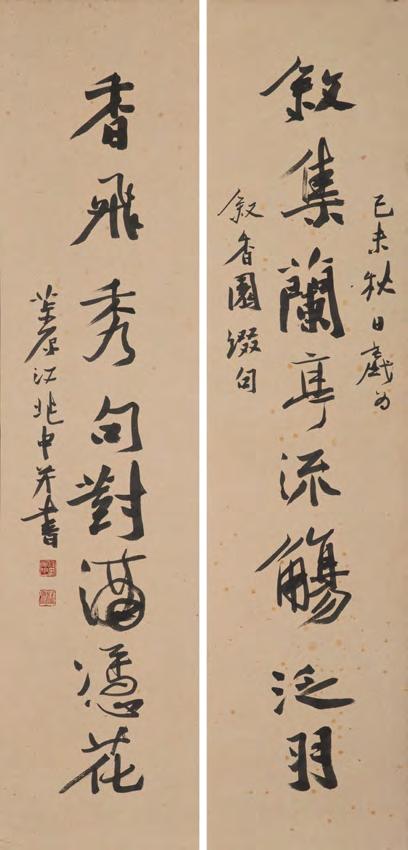 己未秋日戲為
敘集蘭亭流觴泛羽
敘香園綴句
香飛秀句對酒憑花
萊原江兆申并書